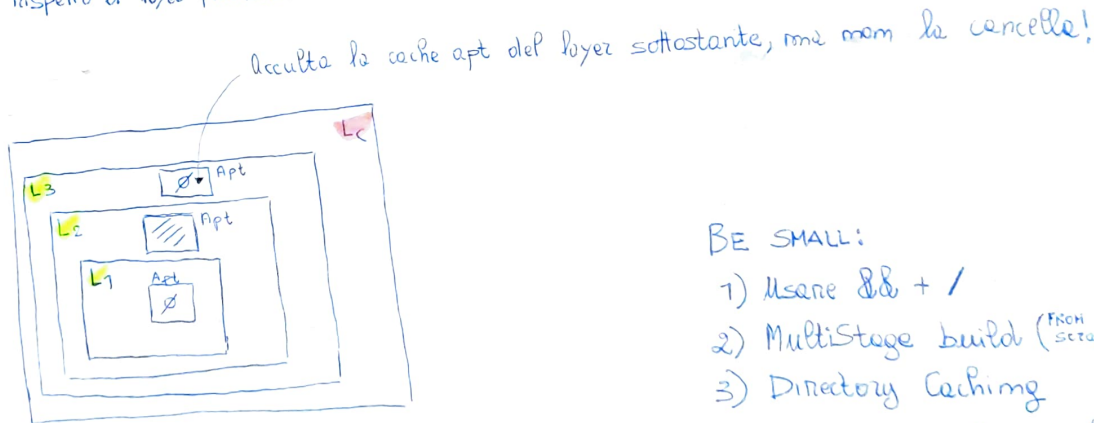 Occulta la cache apt del layer sottostante, ma non la cancella!
Lc
L3
Ø
Apt
L2
Apt
L1
Apt
Ø
BE SMALL:
1) Usare && + /
2) MultiStage build (FROM
3) Directory Caching